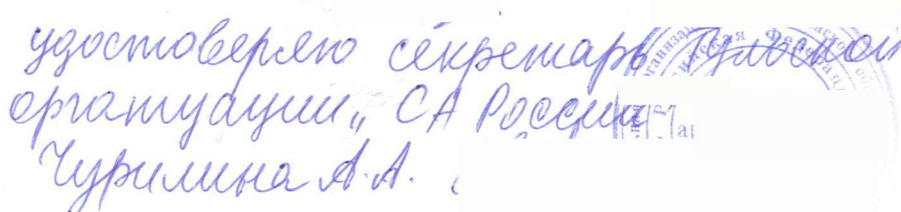 удостоверяю секретарь Тульской
организации „ СА России
Чурилина А.А.